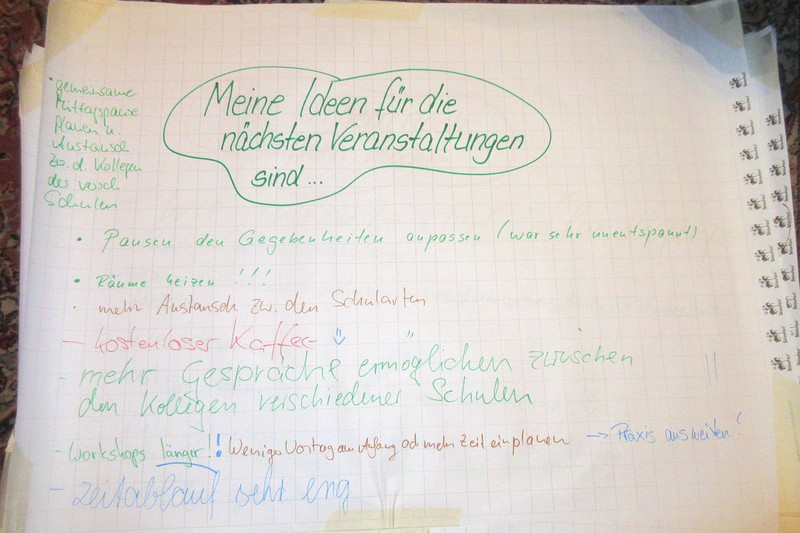 Meine Ideen für die
nächsten Veranstaltungen
sind...
• gemeinsame
Mittagspause
planen u.
Austausch
zw. d. Kollegen
der versch.
Schulen
• Pausen den Gegebenheiten anpassen (war sehr unentspannt)
• Räume heizen !!!
• mehr Austausch zw. den Schularten
- kostenloser Kaffee
- mehr Gespräche ermöglichen zwischen
den Kollegen verschiedener Schulen
- Workshops länger!! Weniger Vortrag am Anfang od mehr Zeit einplanen → Praxis ausweiten!
- Zeitablauf sehr eng